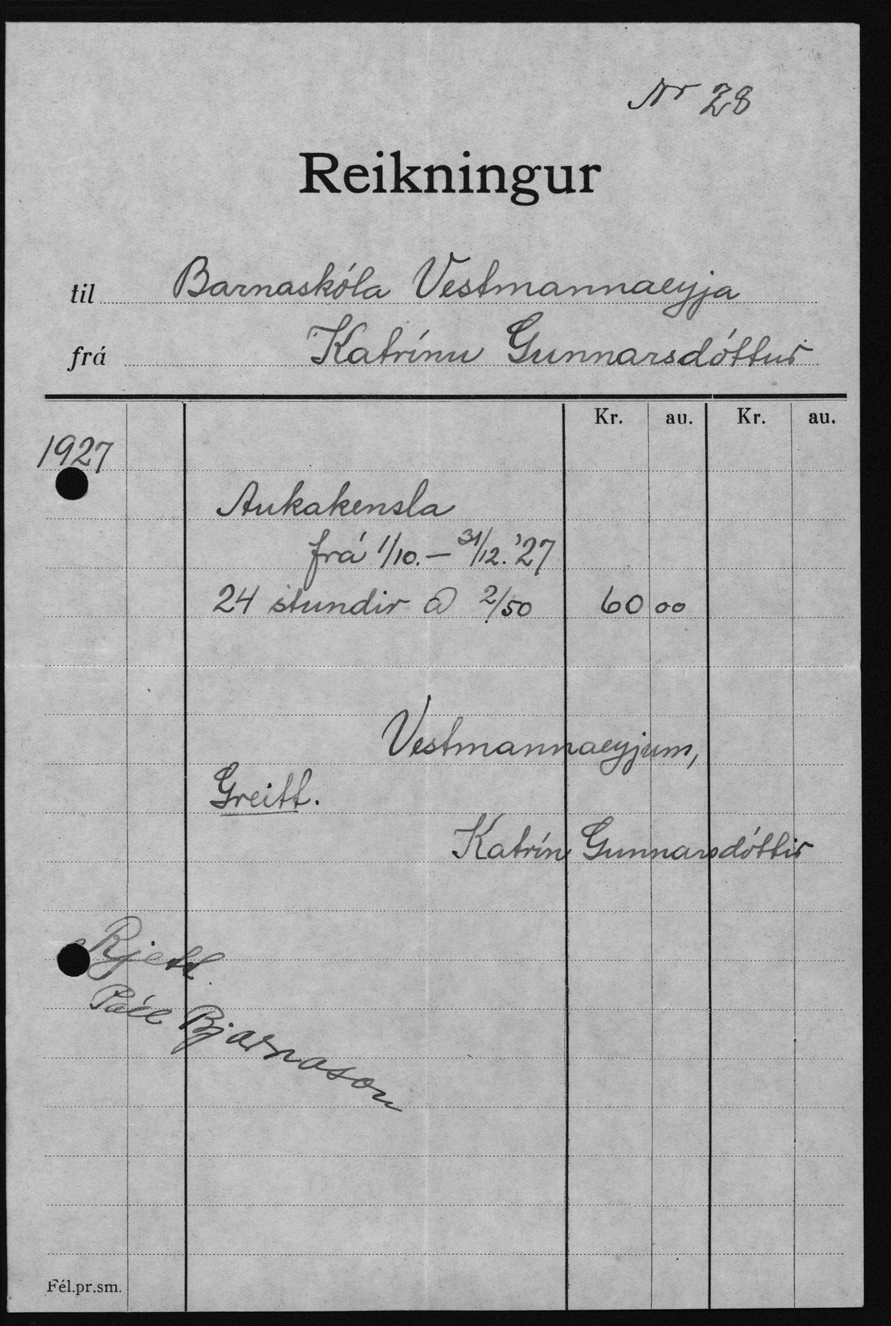 Nr 28
Reikningur
til Barnaskóla Vestmannaeyja
frá Katrínu Gunnarsdóttur
Kr. au. Kr. au.
1927
Aukakensla
frá 1/10. – 31/12. '27
24 stundir @ 2/50 60 00
Vestmannaeyjum,
Greitt.
Katrín Gunnarsdóttir
Rjett
Páll Bjarnason
Fél.pr.sm.